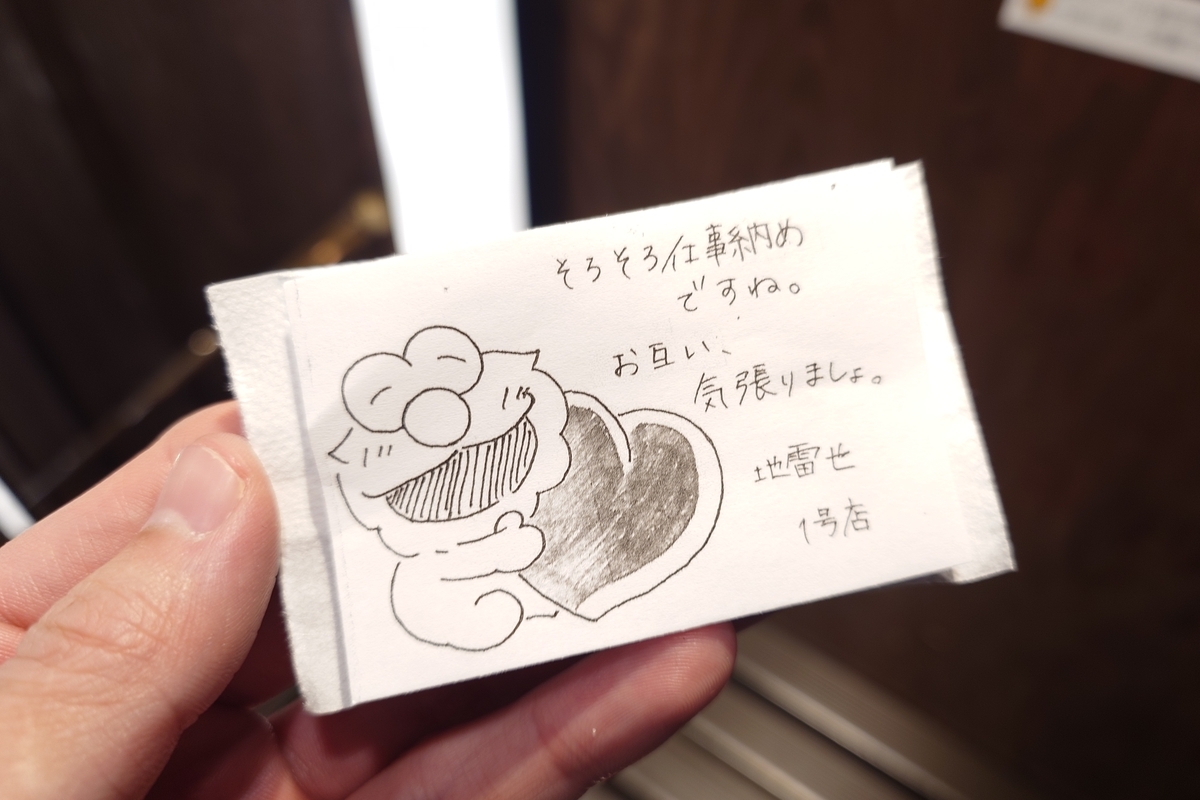 そろそろ仕事納め
ですね。
お互い、
気張りましょ。
地雷也
1号店